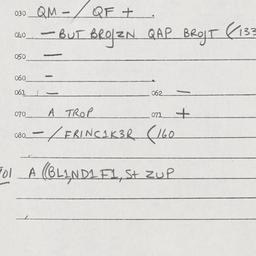 030 QM - / QF + .
040 - BUT BROJZN QAP BROJT (/133
050 -
060 - .
061 - 062 -
070 A TROP 071 +
080 - / FRINC1K3R (160
701 A ((BL1ND1F1, S+ ZUP